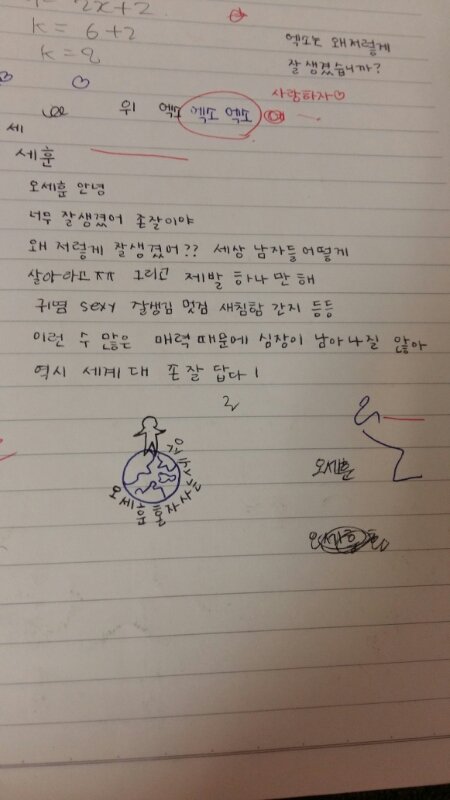 2x+2
k = 6+2
k = 8
엑소는 왜저렇게
잘생겼습니까?
사랑하자♡
위 엑소 엑소 엑소
세
세훈
오세훈 안녕
너무 잘생겼어 존잘이야
왜 저렇게 잘생겼어?? 세상 남자들 어떻게
살아아고ㅠㅠ 그리고 제발 하나만 해
귀염 sexy 잘생김 멋짐 새침함 간지 등등
이런 수 많은 매력 때문에 심장이 남아나질 않아
역시 세계 대 존잘 답다!
오세훈
오세훈 혼자사는